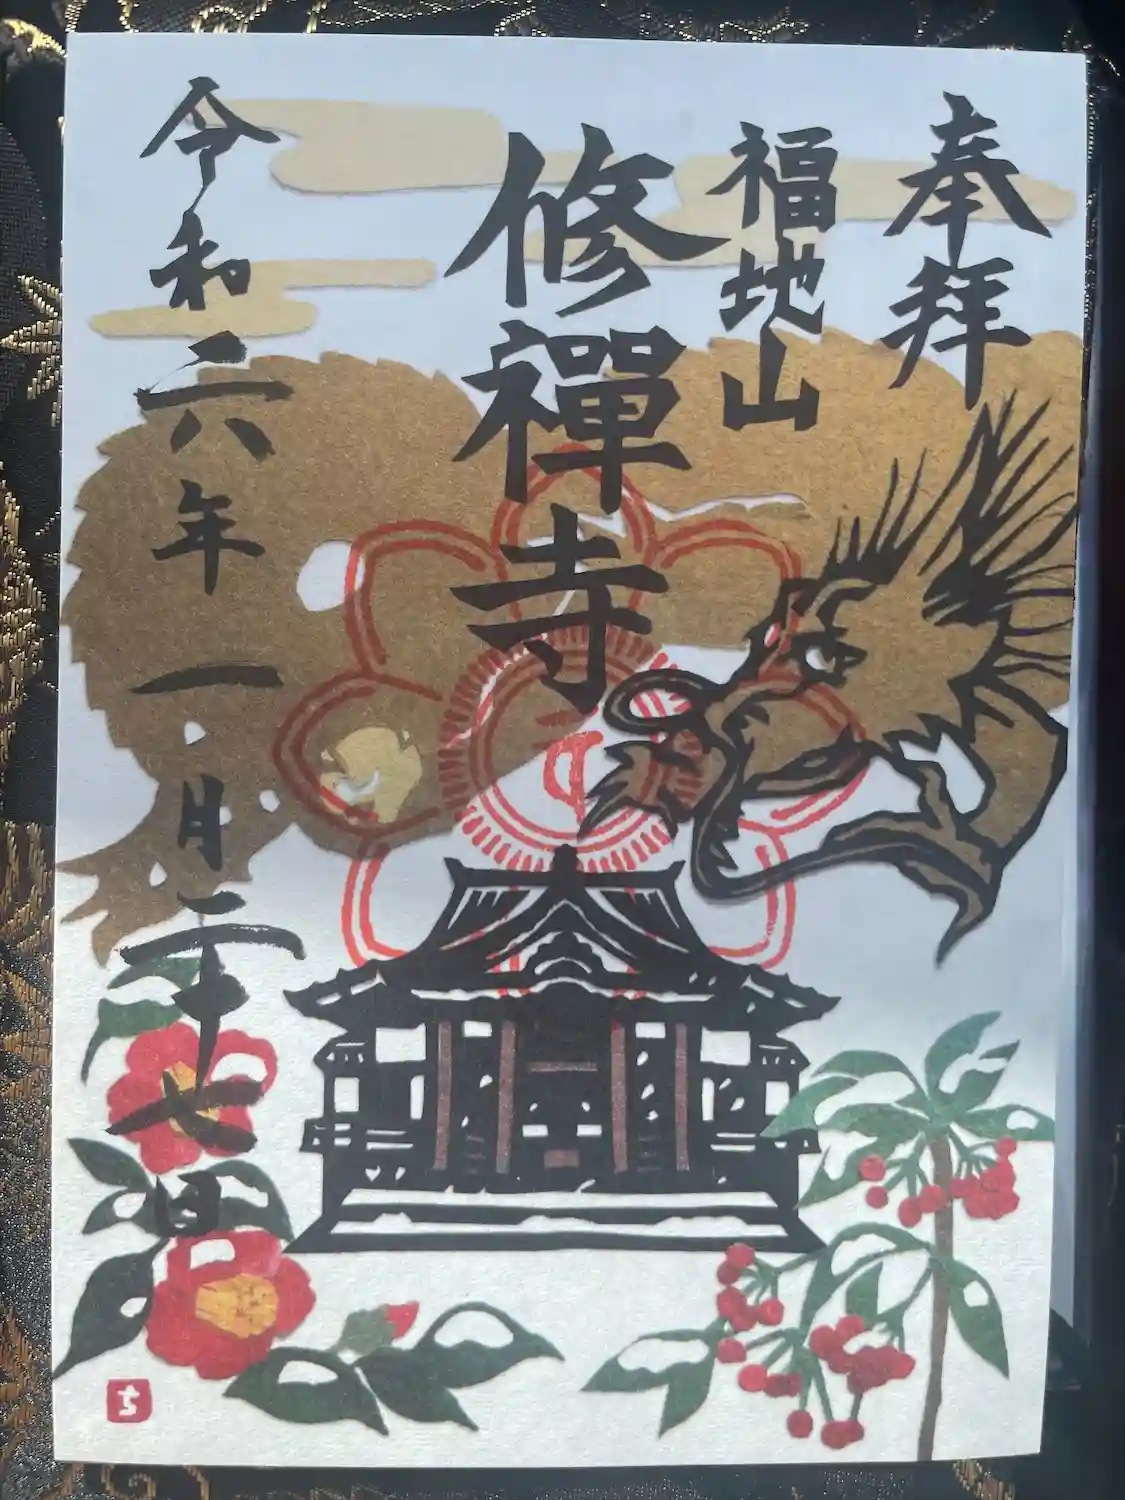 奉拝
福地山
修禪寺
令和六年一月二十七日
ち